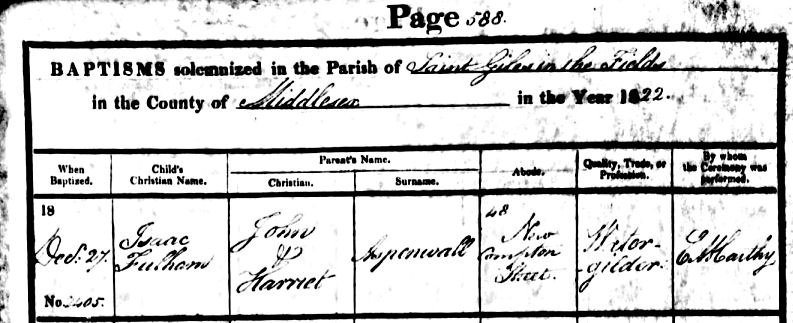 Page 588.
BAPTISMS solemnized in the Parish of Saint Giles in the Fields
in the County of Middlesex in the Year 1822.
When Baptized.
Child's Christian Name.
Parent's Name.
Christian.
Surname.
Abode.
Quality, Trade, or Profession.
By whom the Ceremony was performed.
18
Decr. 27.
No. 2405.
Isaac
Fulham
John
&
Harriet
Aspenwall
48
New
Compton
Street.
gilder.